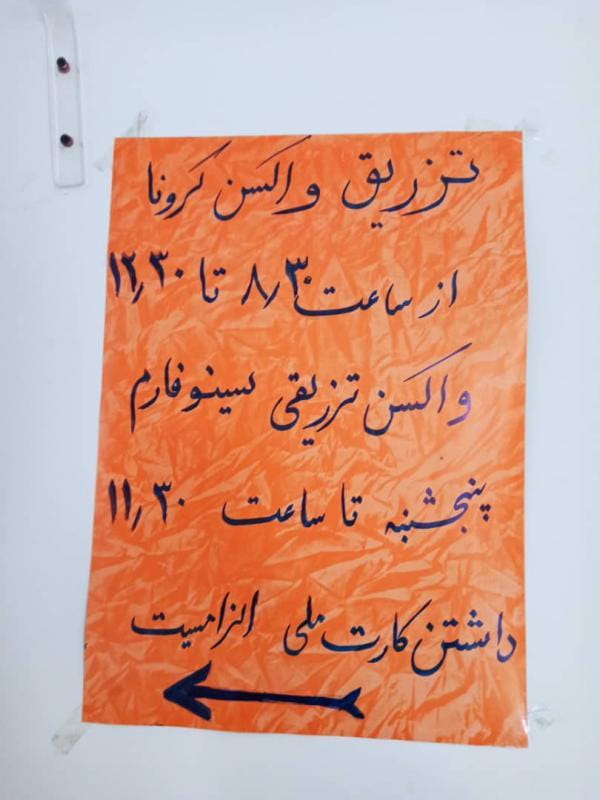 تزریق واکسن کرونا
از ساعت ۸٫۳۰ تا ۱۲٫۳۰
واکسن تزریقی سینوفارم
پنجشنبه تا ساعت ۱۱٫۳۰
داشتن کارت ملی الزامیست